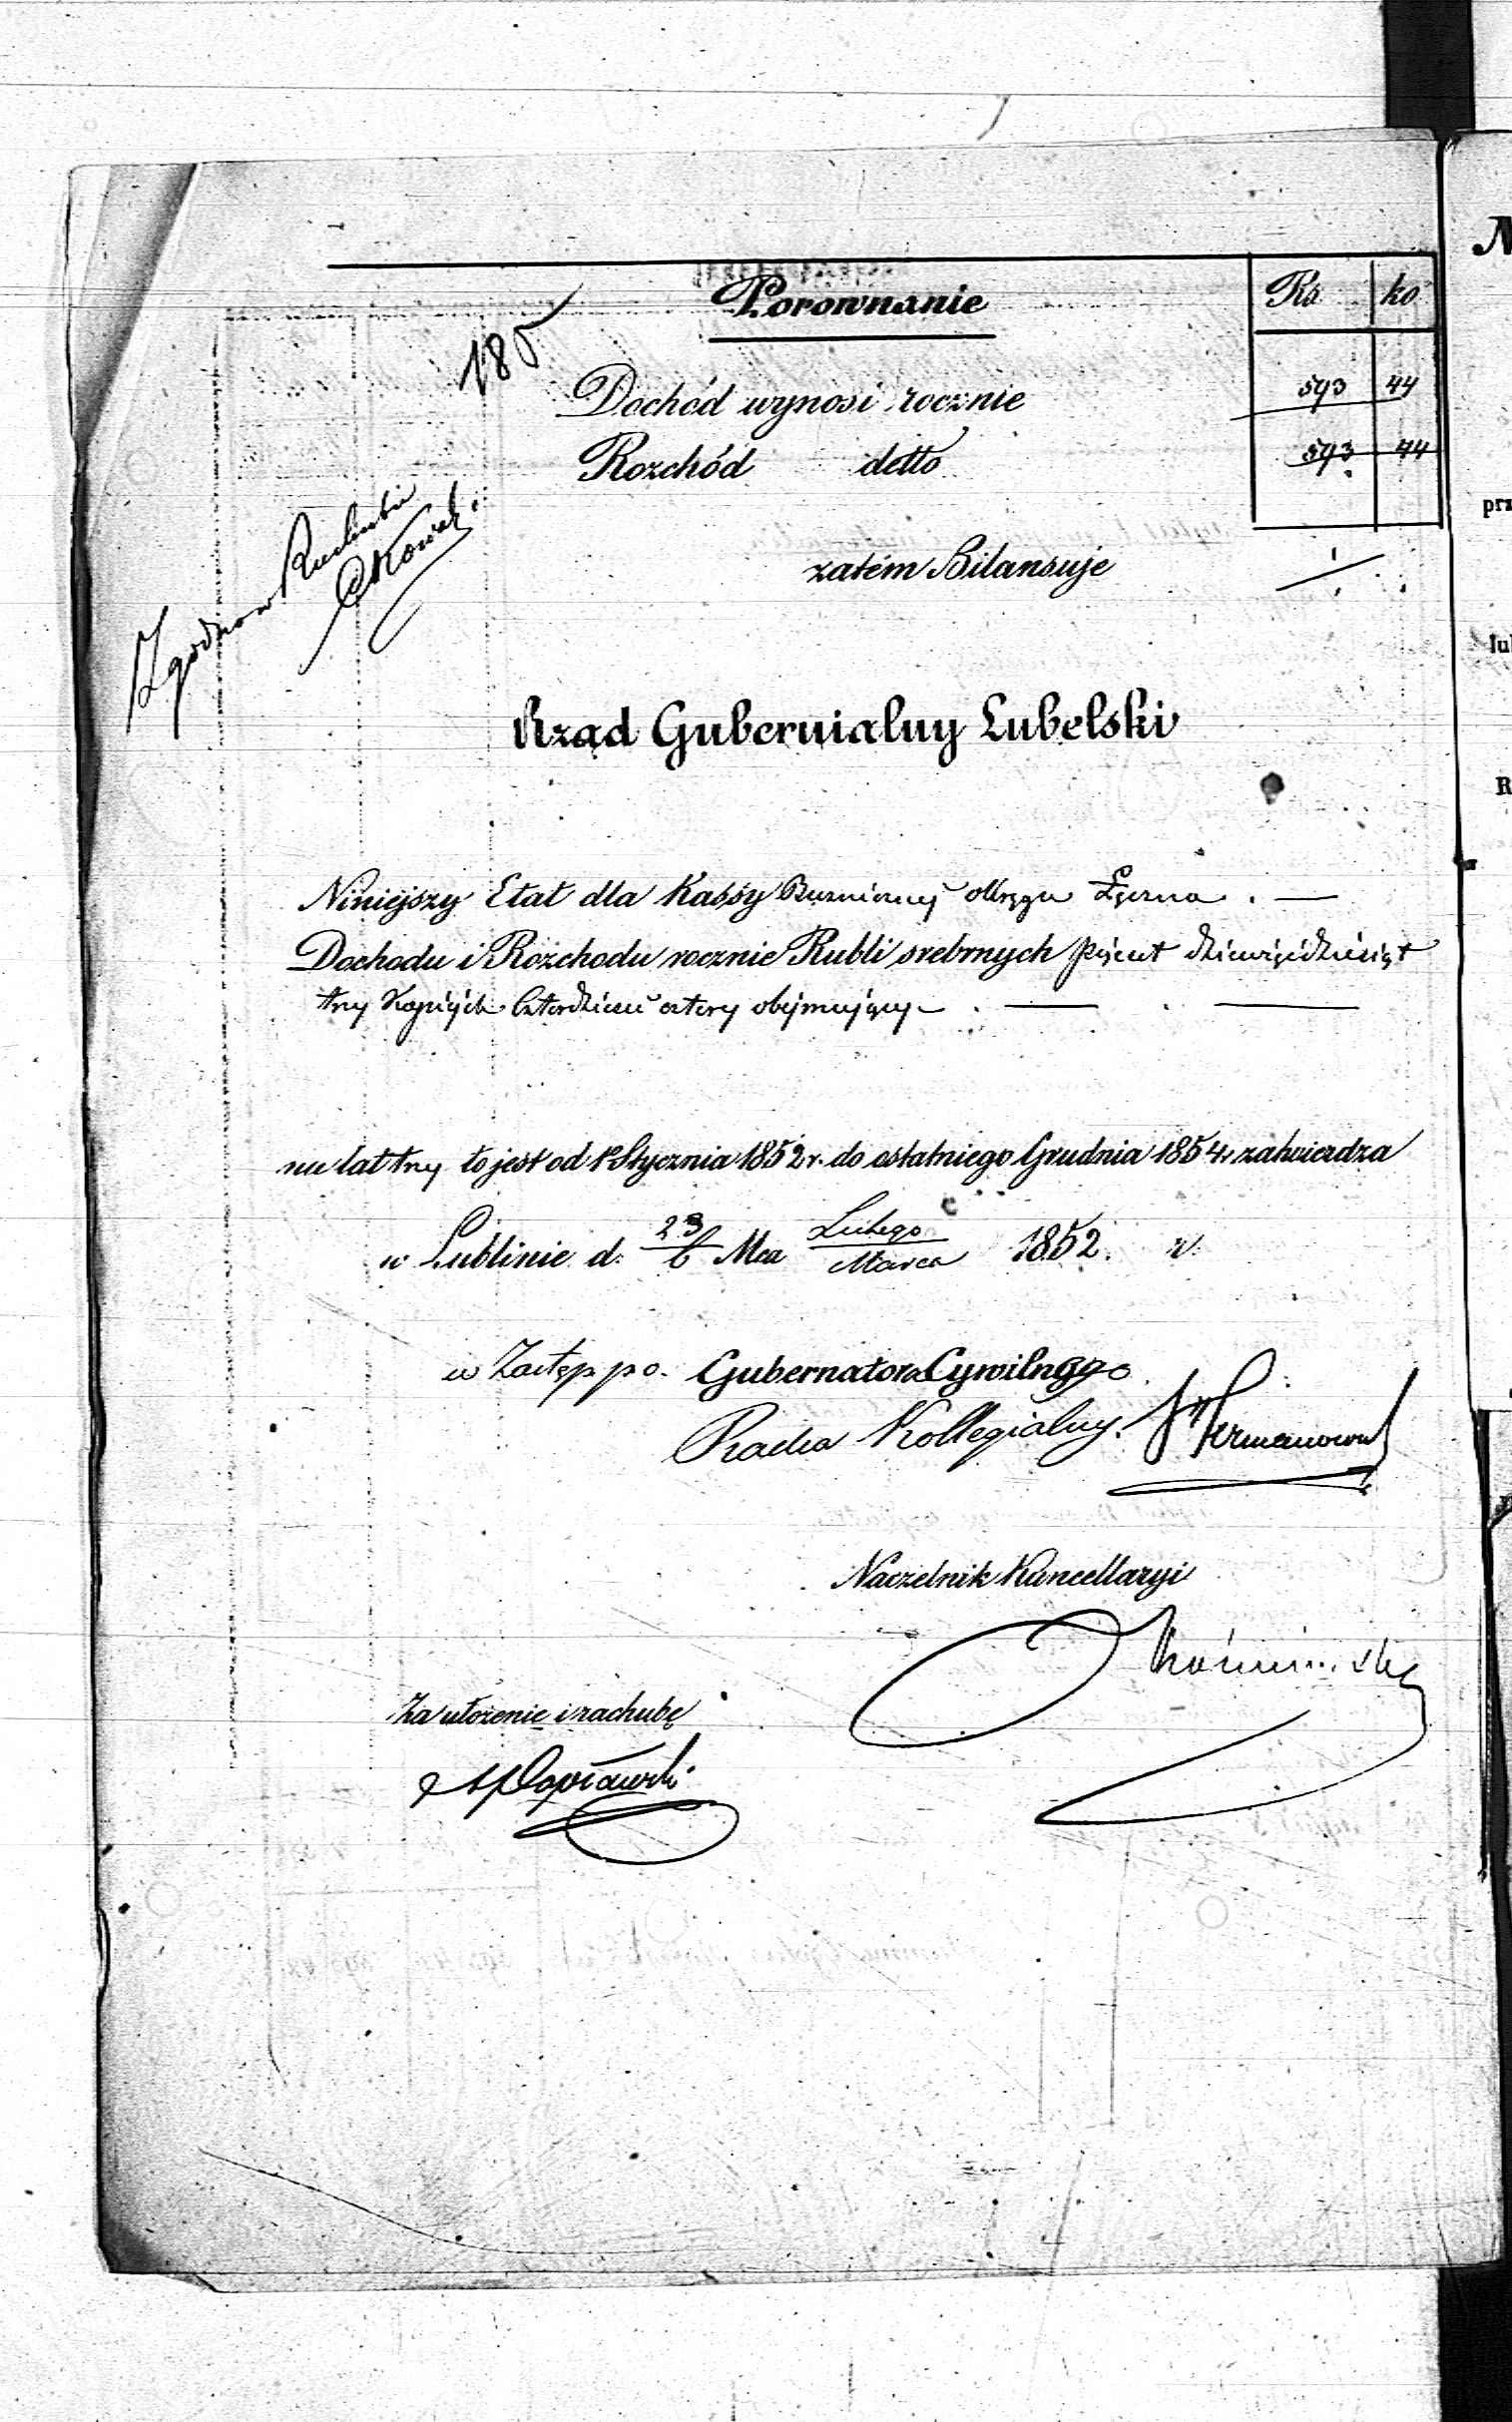 Porownanie
Rs ko
185
Dochód wynosi rocznie 593 44
Rozchód detto 593 44
Zgodno w
zatém Bilansuje
Rząd Gubernialny Lubelski
Niniejszy Etat dla Kassy Bużniczny okręgu Łęczna . —
Dochodu i Rozchodu rocznie Rubli srebrnych pięćset dziewięćdziesiąt
trzy Kopiejek czterdzieści cztery obejmujący — . — . —
na lat trzy to jest od 1o Stycznia 1852 r. do ostatniego Grudnia 1854 r. zatwierdza
w Lublinie d. 23/6 Mca Lutego/Marca 1852 r.
w Zastęp. p. o. Gubernatora Cywilnego
Radca Kollegialny
Naczelnik Kancellaryi
Za ułożenie i rachubę